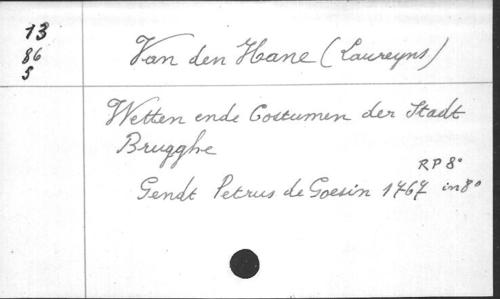 13
86
5
Van den Hane (Laureyns)
Wetten ende Costumen der Stadt
Brugghe
RP 8°
Gendt Petrus de Goesin 1767 in 8°